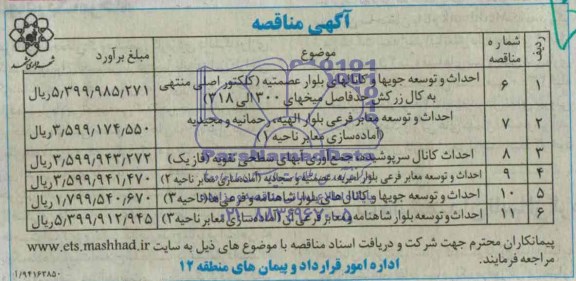 آگهی مناقصه
ردیف	شماره مناقصه	موضوع	مبلغ برآورد
۱	۶	احداث و توسعه جویها و کانالهای بلوار عصمتیه (کلکتور اصلی منتهی به کال زرکش حدفاصل میخهای ۳۰۰ الی ۳۱۸)	۵٫۳۹۹٫۹۸۵٫۲۷۱ریال
۲	۷	احداث و توسعه معابر فرعی بلوار الهیه، رحمانیه و مجیدیه (آماده‌سازی معابر ناحیه ۱)	۳٫۵۹۹٫۱۷۴٫۵۵۰ریال
۳	۸	احداث کانال سرپوشیده جمع‌آوری آبهای سطحی (فاز یک)	۳٫۵۹۹٫۹۴۳٫۲۷۲ریال
۴	۹	احداث و توسعه معابر فرعی بلوار (آماده‌سازی معابر ناحیه ۲)	۳٫۵۹۹٫۹۴۱٫۴۷۰ریال
۵	۱۰	احداث و توسعه جویها و کانال های بلوار شاهنامه و فرعی‌ها (ناحیه ۳)	۱٫۷۹۹٫۵۴۰٫۶۷۰ریال
۶	۱۱	احداث و توسعه بلوار شاهنامه و معابر فرعی آن (آماده‌سازی معابر ناحیه ۳)	۵٫۳۹۹٫۹۱۲٫۹۴۵ریال
پیمانکاران محترم جهت شرکت و دریافت اسناد مناقصه با موضوع های ذیل به سایت www.ets.mashhad.ir
مراجعه فرمایند.
اداره امور قرارداد و پیمان های منطقه ۱۲
۱/۹۴۱۶۳۸۵۰